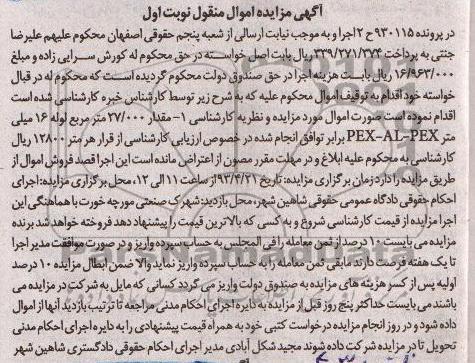 آگهی مزایده اموال منقول نوبت اول
در پرونده ۹۳۰۱۱۵ح ۲ اجرا و به موجب نیابت ارسالی از شعبه پنجم حقوقی اصفهان محکوم علیهم علیرضا
جنتی به پرداخت ۳۳۹/۲۷۱/۳۷۴ ریال بابت اصل خواسته در حق محکوم له کورش سرایی زاده و مبلغ
۱۶/۹۶۳/۰۰۰ ریال بابت هزینه اجرا در حق صندوق دولت محکوم گردیده است که محکوم له در قبال
خواسته خود اقدام به توقیف اموال محکوم علیه که به شرح زیر توسط کارشناس خبره کارشناسی شده است
اقدام نموده است صورت اموال مورد مزایده و نظریه کارشناسی ۱- مقدار ۲۷/۰۰۰ متر مربع لوله ۱۶ میلی
متر PEX-AL-PEX برابر توافق انجام شده در خصوص ارزیابی کارشناسی از قرار هر متر ۱۲۸۰۰ ریال
کارشناسی به محکوم علیه ابلاغ و در مهلت مقرر مصون از اعتراض مانده است این اجرا قصد فروش اموال از
طریق مزایده را دارد زمان برگزاری مزایده: تاریخ ۹۳/۴/۲۱ از ساعت ۱۱ الی ۱۲، محل برگزاری مزایده: اجرای
احکام حقوقی دادگاه عمومی حقوقی شاهین شهر، محل بازدید: شهرک صنعتی مورچه خورت با هماهنگی این
اجرا مزایده از قیمت کارشناسی شروع و به کسی که بالاترین قیمت را پیشنهاد دهد فروخته خواهد شد برنده
مزایده می بایست ۱۰ درصد از ثمن معامله رافی المجلس به حساب سپرده واریز و در صورت موافقت مدیر اجرا
تا یک هفته فرصت دارند مابقی ثمن معامله را به حساب سپرده واریز نماید والا ضمن ابطال مزایده ۱۰ درصد
اولیه پس از کسر هزینه های مزایده به صندوق دولت واریز می گردد کسانی که مایل به شرکت در مزایده می
باشند می بایست حداکثر پنج روز قبل از مزایده به دایره اجرای احکام مدنی مراجعه تا ترتیب بازدید آنها از اموال
داده شود و در روز انجام مزایده درخواست کتبی خود به همراه قیمت پیشنهادی را به دایره اجرای احکام مدنی
تحویل تا در مزایده شرکت داده شوند مجید شکل آبادی مدیر اجرای احکام حقوقی دادگستری شاهین شهر